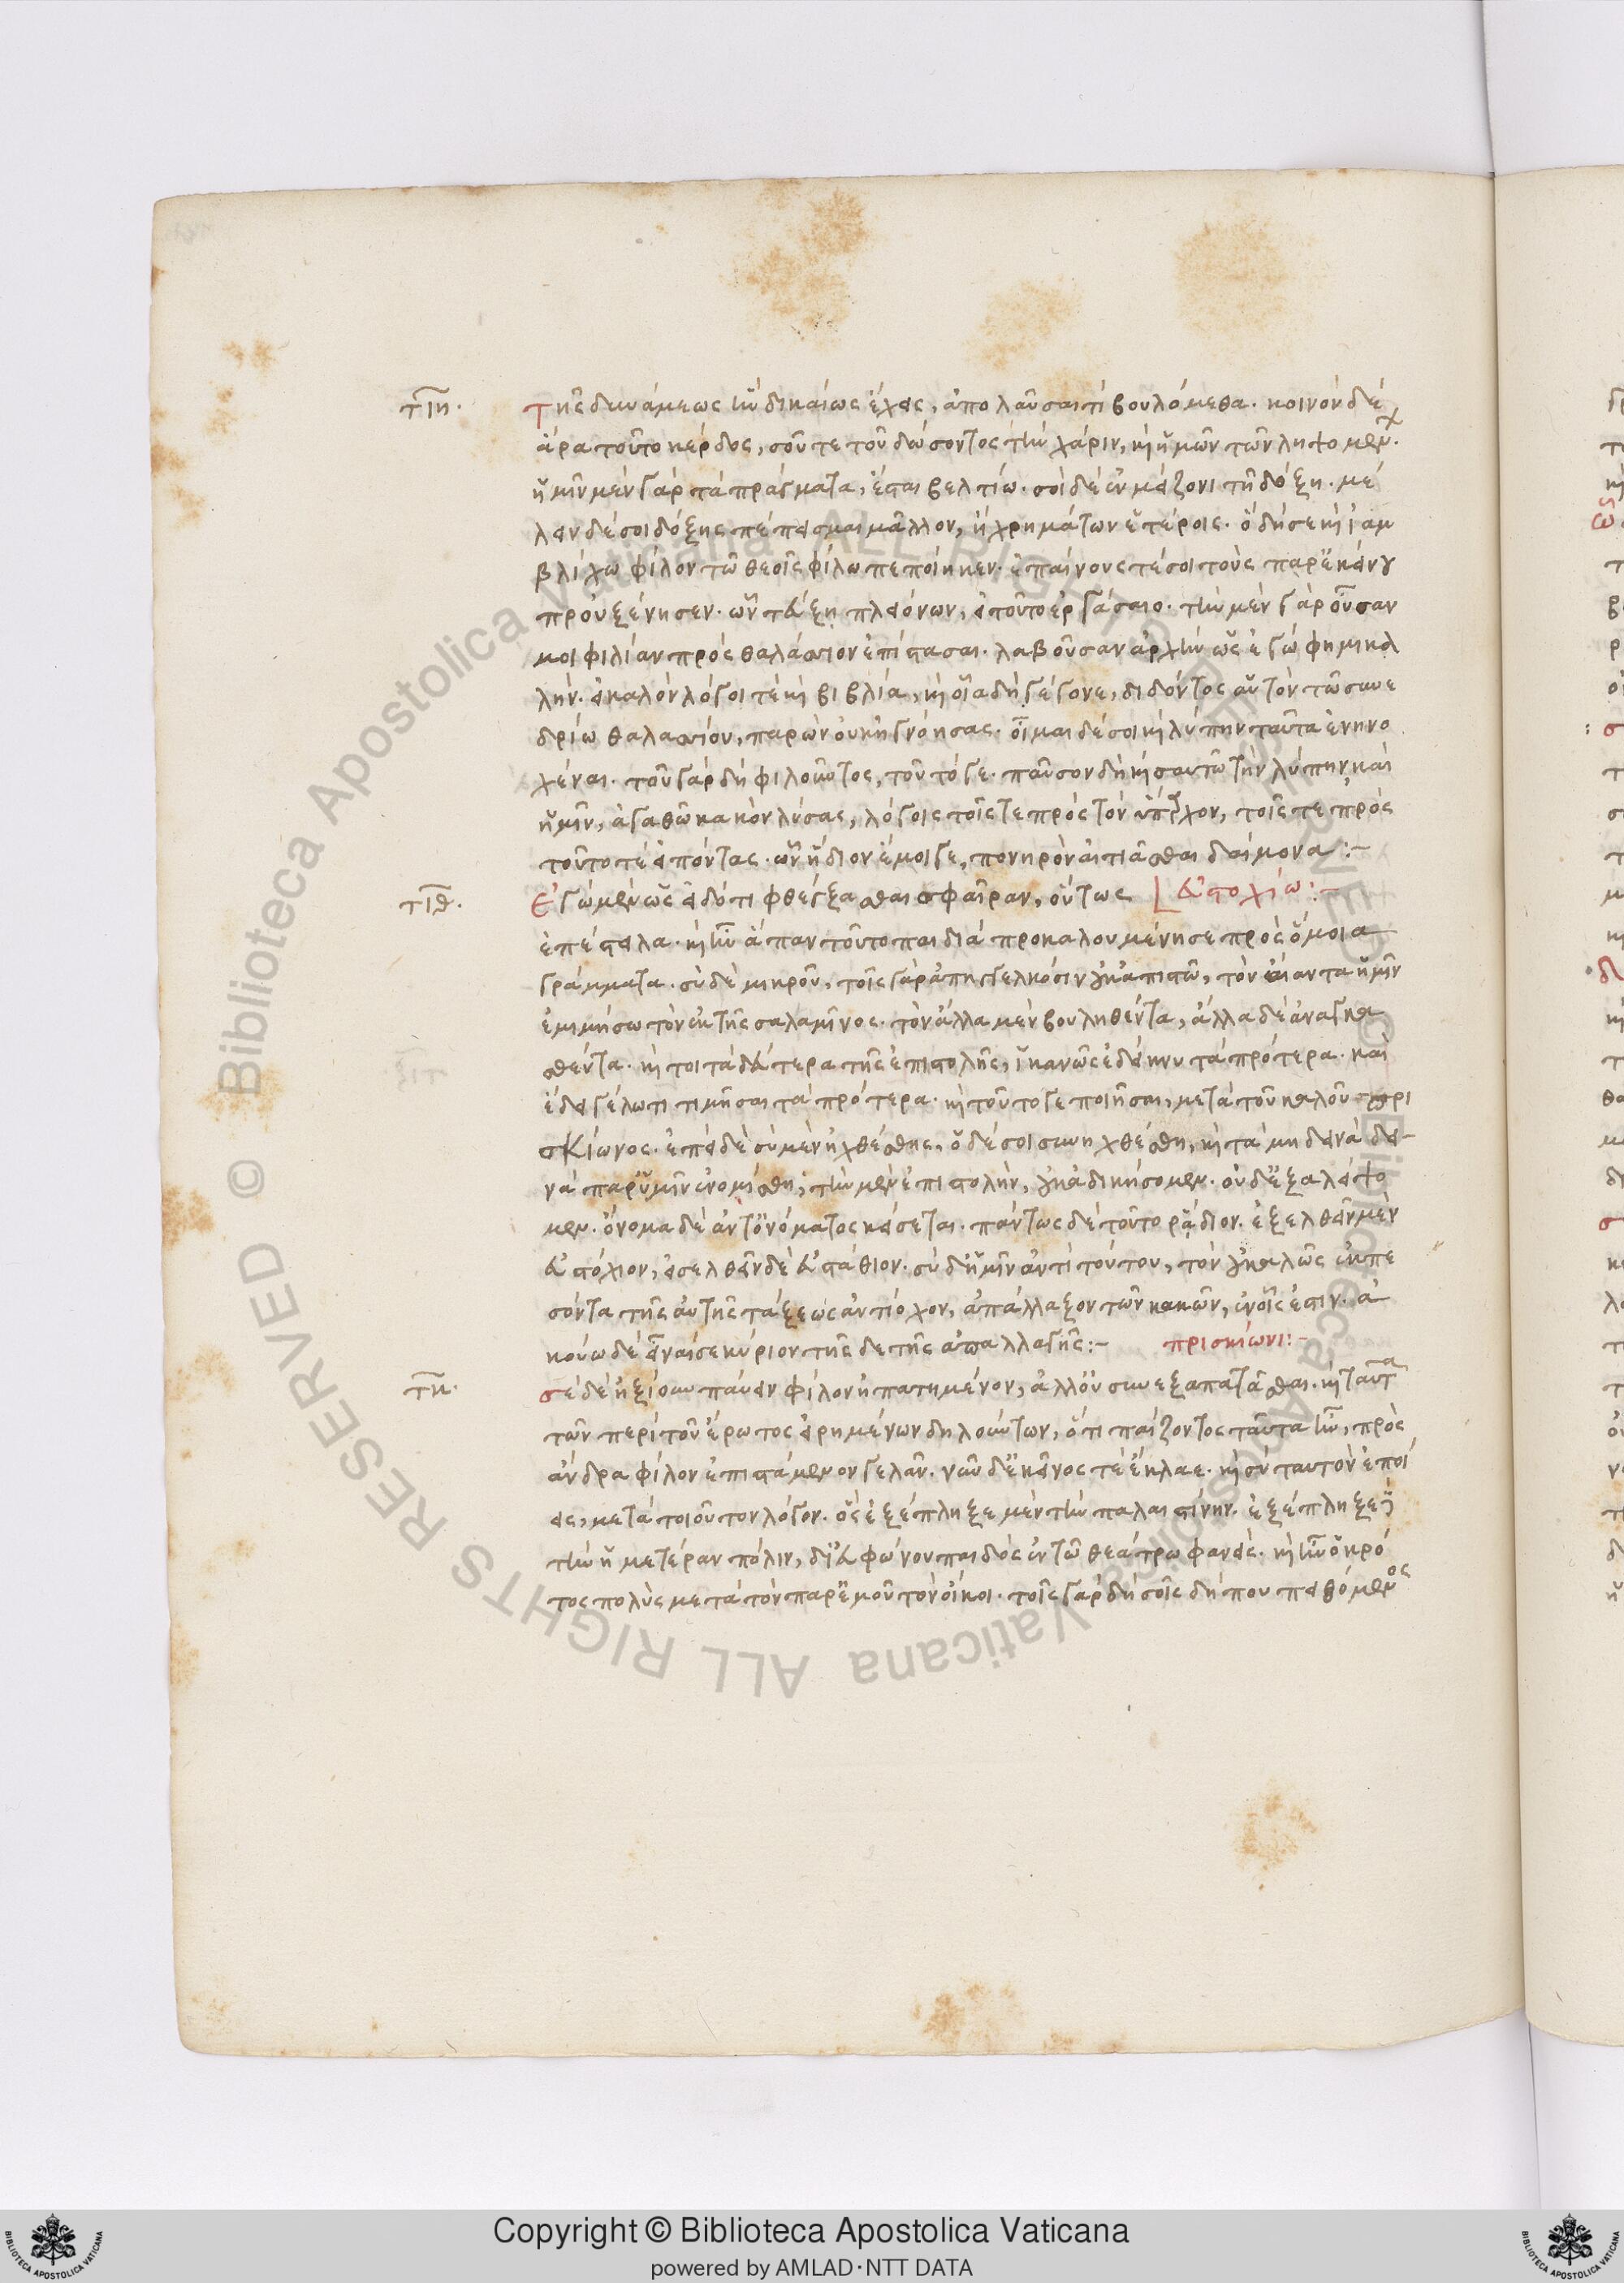 τιη. Τῆς δυνάμεως ἣν δικαίως ἔχεις, ἀπολαῦσαί τι βουλόμεθα. κοινὸν δὲ
ἄρα τοῦτο κέρδος, σοῦ τε τοῦ δώσοντος τὴν χάριν, καὶ ἡμῶν τῶν ληψομένων.
ἡμῖν μὲν γὰρ τὰ πράγματα, ἔσται βελτίω. σοὶ δὲ ἐν μείζονι τῇ δόξῃ. μέ
λειν δέ σοι δόξης πέπεισμαι μᾶλλον, ἢ χρημάτων ἑτέροις. ὃ δή σε καὶ ἰαμ
βλίχω φίλον τῶ θεοῖς φίλω πεποίηκεν. ἐπαίνους τέ σοι τοὺς παρ' ἐκείνου
προὐξένησεν. ὧν τεύξη πλειόνων, εἰ τοῦτο ἐργάσαιο. τὴν μὲν γὰρ οὖσάν
μοι φιλίαν πρὸς θαλάσσιον ἐπίστασαι. λαβοῦσαν ἀρχὴν ὡς ἐγώ φημι κα
λήν. εἰ καλὸν λόγοι τὲ καὶ βιβλία, καὶ οἷα δὴ γέγονε, διδόντος αὑτὸν τῶ συνε
δρίω θαλασσίου, παρὼν οὐκ ἠγνόησας. οἶμαι δέ σοι καὶ λύπην ταῦτα ἐνηνο
χέναι. τοῦ γὰρ δὴ φιλοῦντος, τοῦτό γε. παῦσον δὴ καὶ σαυτῶ τὴν λύπην καὶ
ἡμῖν, ἀγαθῶ κακὸν λύσας, λόγοις τοῖς τε πρὸς τὸν ὕπαρχον, τοῖς τε πρὸς
τοῦτό τε εἰπόντας. ὧν ἥδιον ἔμοιγε, πονηρὸν αἰτιᾶσθαι δαίμονα:-
τιθ. Ἐγὼ μὲν ὡς εἰδότι φθέγξασθαι σφαῖραν, οὕτως Εὐστοχίω:-
ἐπέστειλα. καὶ ἦν ἅπαν τοῦτο παιδιὰ προκαλουμένη σε πρὸς ὅμοια
γράμματα. σὺ δὲ μικροῦ, τοῖς γὰρ ἀπηγγελκόσιν οὐκ ἀπιστῶ, τὸν αἴαντα ἡμῖν
ἐμιμήσω τὸν ἐκ τῆς σαλαμῖνος. τὸν ἄλλα μὲν βουληθέντα, ἄλλα δὲ ἀναγκα
σθέντα. καίτοι τὰ δεύτερα τῆς ἐπιστολῆς, ἱκανῶς ἐδείκνυ τὰ πρότερα. καὶ
ἔδει γέλωτι τιμῆσαι τὰ πρότερα. καὶ τοῦτό γε ποιῆσαι, μετὰ τοῦ καλοῦ πρι
σκίωνος. ἐπεὶ δὲ σὺ μὲν ἠχθέσθης, ὁ δέ σοι συνηχθέσθη, καὶ τὰ μὴ δεινὰ δει-
νὰ παρ' ὑμῖν ἐνομίσθη, τὴν μὲν ἐπιστολὴν, οὐκ ἀδικήσομεν. οὐδ' ἐξαλείψο
μεν. ὄνομα δὲ ἀντ' ὀνόματος κείσεται. πάντως δὲ τοῦτο ῥάδιον. ἐξελθεῖν μὲν
εὐστόχιον, εἰσελθεῖν δὲ εὐστάθιον. σὺ δ' ἡμῖν ἀντὶ τούτου, τὸν οὐ καλῶς ἐκπε
σόντα τῆς αὑτῆς τάξεως ἀντίοχον, ἀπάλλαξον τῶν κακῶν, ἐν οἷς ἐστιν. ἀ
κούω δὲ εἶναί σε κύριον τῆσδε τῆς ἀπαλλαγῆς:- πρισκίωνι:-
τκ. σὲ δὲ ἠξίουν παύειν φίλον ἠπατημένον, ἀλλ' οὐ συνεξαπατᾶσθαι. καὶ ταῦτα
τῶν περὶ τοῦ ἔρωτος εἰρημένων δηλούντων, ὅτι παίζοντος ταῦτα ἦν, πρὸς
ἄνδρα φίλον ἐπιστάμενον γελᾶν. νῦν δ' ἐκεῖνός τε ἔκλαε. καὶ σὺ ταυτὸν ἐποί
εις, μετὰ τοιοῦτον λόγον. ὃς ἐξέπληξε μὲν τὴν παλαιστίνην. ἐξέπληξε δὲ
τὴν ἡμετέραν πόλιν, δι' εὐφώνου παιδὸς ἐν τῶ θεάτρω φανείς. καὶ ἦν ὁ κρό
τος πολὺς μετὰ τὸν παρ' ἐμοῦ τὸν οἴκοι. τοῖς γὰρ δὴ σοῖς δήπου πειθόμενος
Copyright © Biblioteca Apostolica Vaticana
powered by AMLAD·NTT DATA